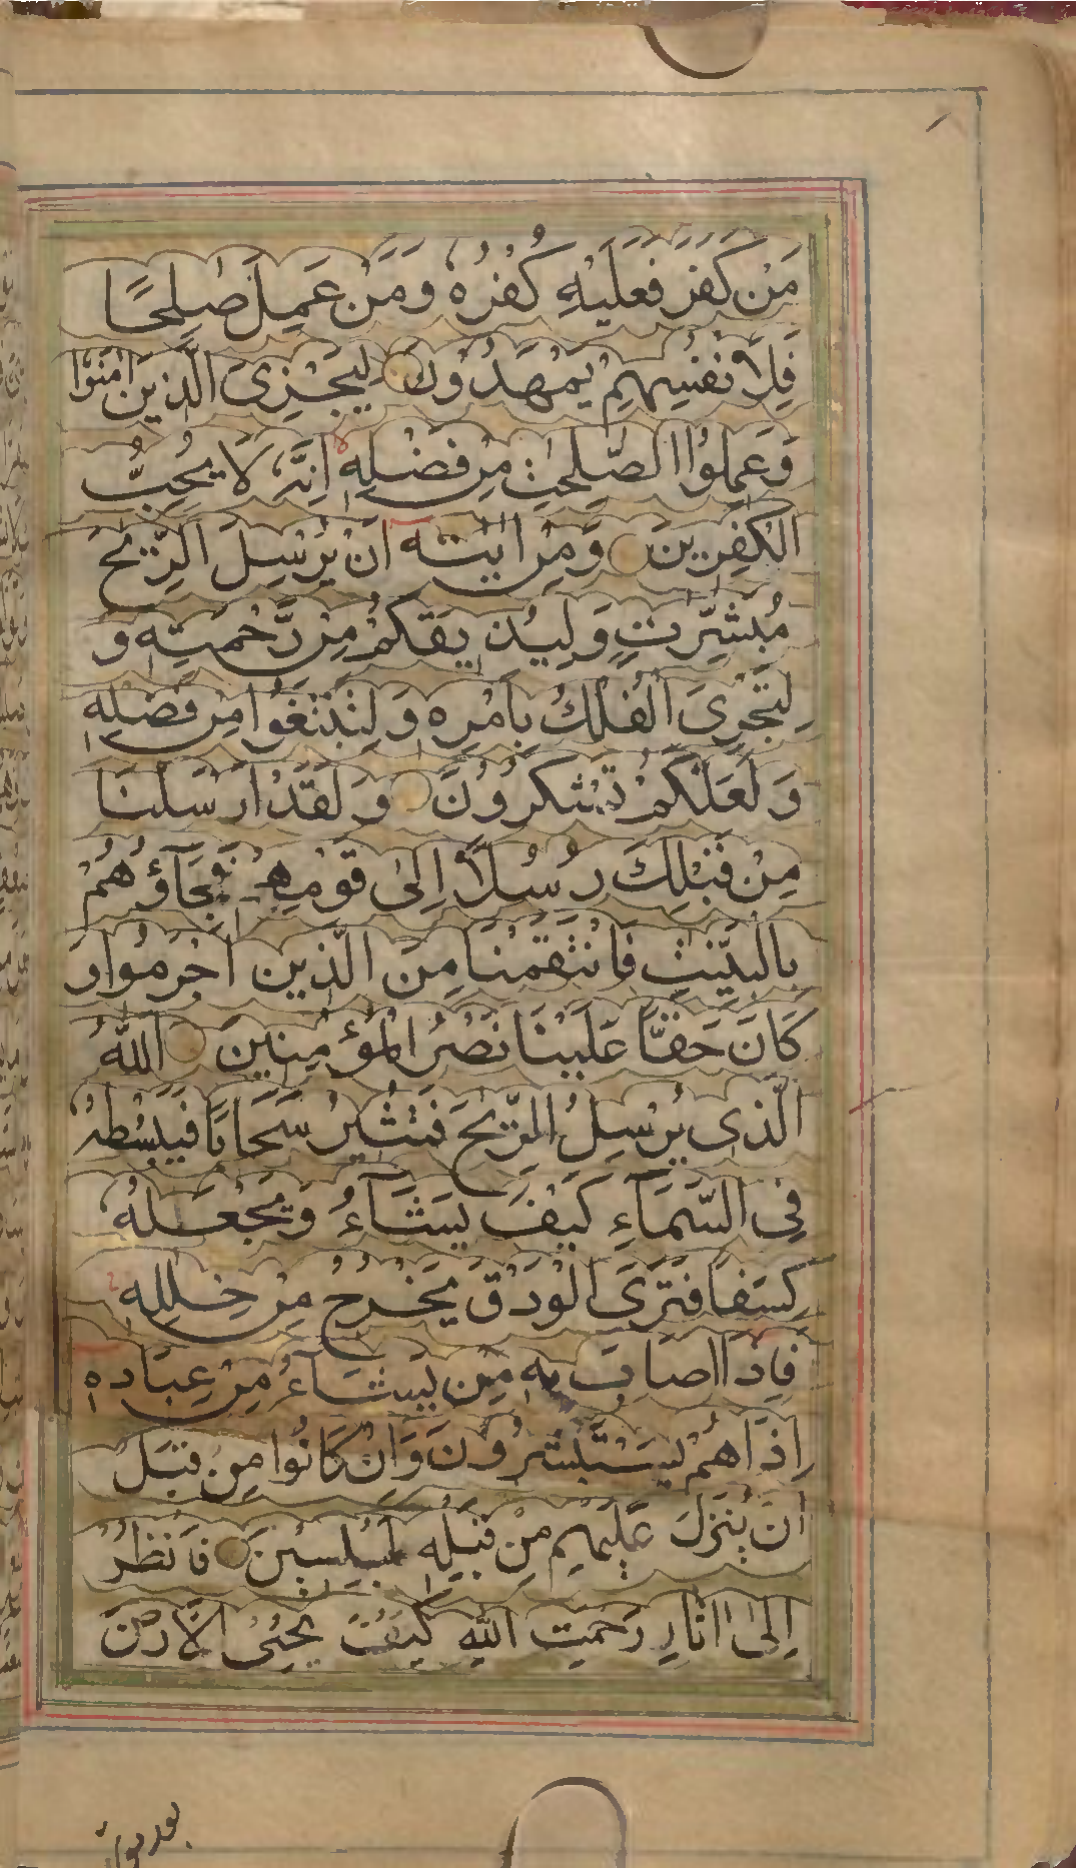 مَنْ كَفَرَ فَعَلَيْهِ كُفْرُهٗ وَمَنْ عَمِلَ صٰلِحًا
فَلِاَنْفُسِهِمْ يَمْهَدُوْنَ لِيَجْزِىَ الَّذِيْنَ اٰمَنُوْا
وَعَمِلُوا الصّٰلِحٰتِ مِنْ فَضْلِهٖ اِنَّهٗ لَا يُحِبُّ
الْكٰفِرِيْنَ وَمِنْ اٰيٰتِهٖ اَنْ يُرْسِلَ الرِّيٰحَ
مُبَشِّرٰتٍ وَلِيُذِيْقَكُمْ مِنْ رَّحْمَتِهٖ وَ
لِتَجْرِىَ الْفُلْكُ بِاَمْرِهٖ وَلِتَبْتَغُوْا مِنْ فَضْلِهٖ
وَلَعَلَّكُمْ تَشْكُرُوْنَ وَلَقَدْ اَرْسَلْنَا
مِنْ قَبْلِكَ رُسُلًا اِلٰى قَوْمِهِمْ فَجَآؤُهُمْ
بِالْبَيِّنٰتِ فَانْتَقَمْنَا مِنَ الَّذِيْنَ اَجْرَمُوْا وَ
كَانَ حَقًّا عَلَيْنَا نَصْرُ الْمُؤْمِنِيْنَ اَللّٰهُ
الَّذِىْ يُرْسِلُ الرِّيٰحَ فَتُثِيْرُ سَحَابًا فَيَبْسُطُهٗ
فِى السَّمَآءِ كَيْفَ يَشَآءُ وَيَجْعَلُهٗ
كِسَفًا فَتَرَى الْوَدْقَ يَخْرُجُ مِنْ خِلٰلِهٖ
فَاِذَا اَصَابَ بِهٖ مَنْ يَّشَآءُ مِنْ عِبَادِهٖ
اِذَا هُمْ يَسْتَبْشِرُوْنَ وَاِنْ كَانُوْا مِنْ قَبْلِ
اَنْ يُنَزَّلَ عَلَيْهِمْ مِنْ قَبْلِهٖ لَمُبْلِسِيْنَ فَانْظُرْ
اِلٰى اٰثَارِ رَحْمَتِ اللّٰهِ كَيْفَ يُحْيِى الْاَرْضَ